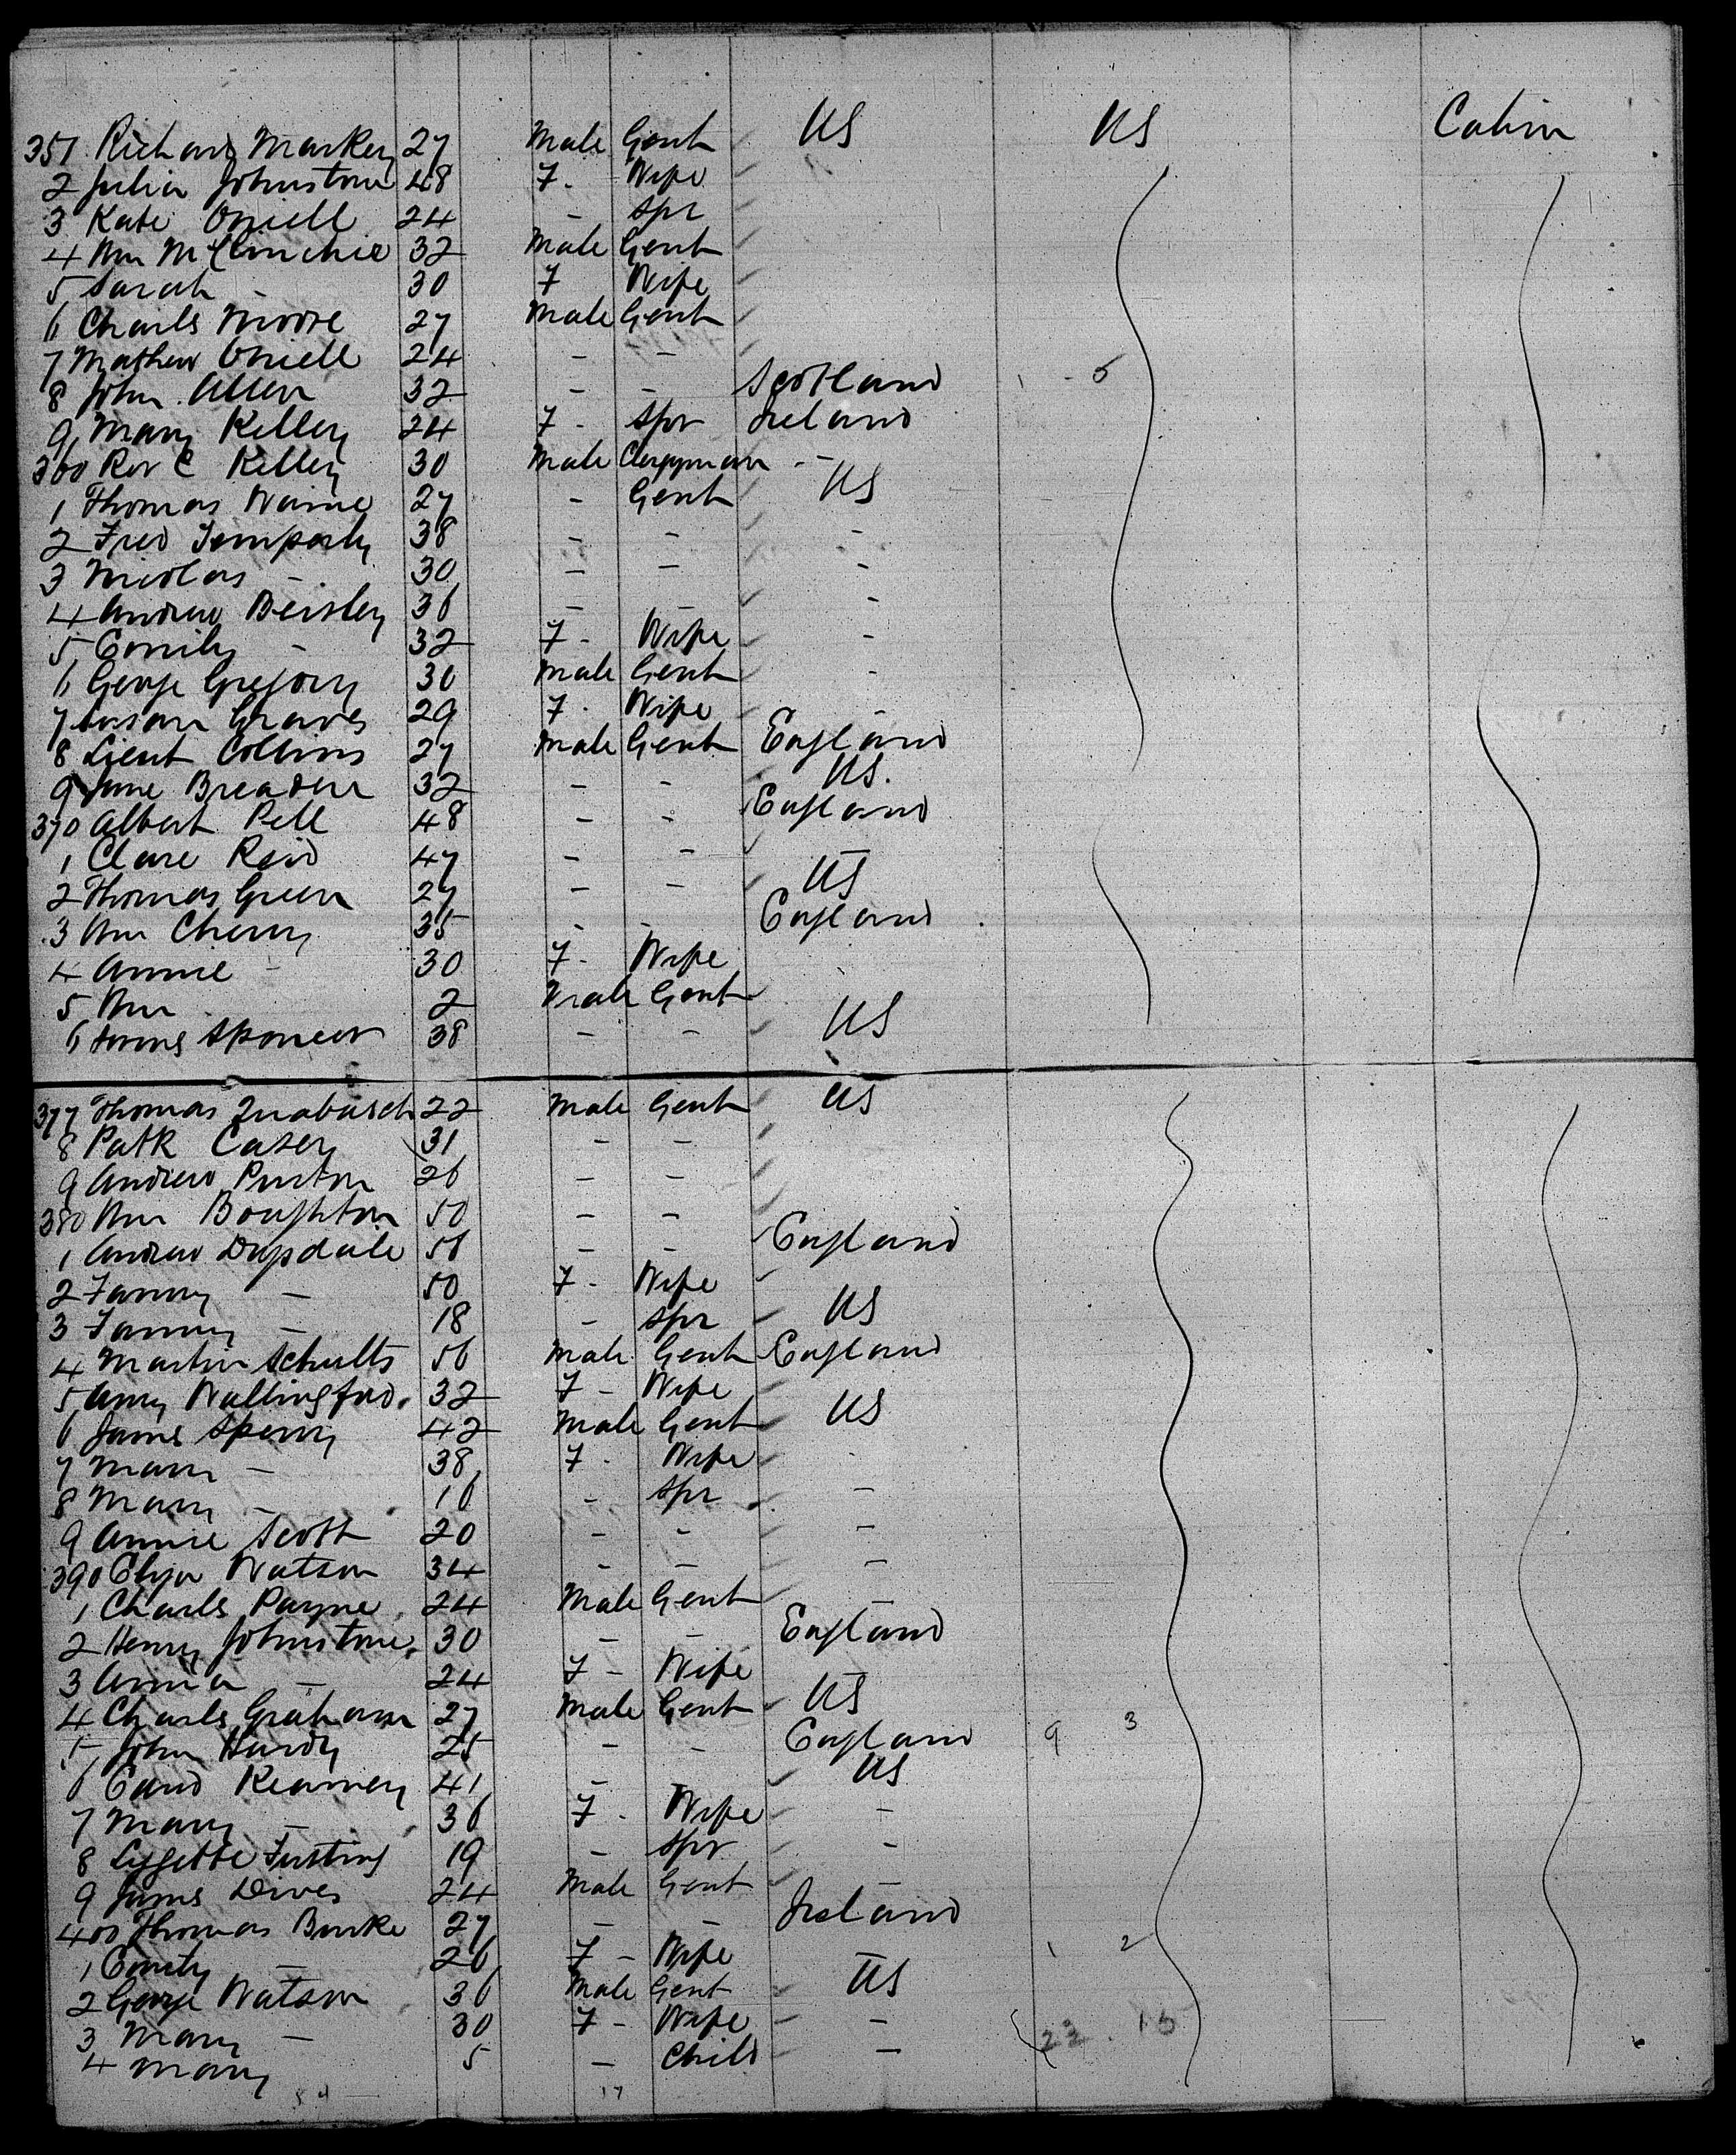 351 Richard Markey 27 Male Gent US US Cabin
2 Julia Johnstone 48 F - Wife
3 Kate Oniell 24 - Spr
4 Wm McClinchie 32 Male Gent
5 Sarah - 30 F Wife
6 Charls Moore 27 Male Gent
7 Mathew Oniell 24 - -
8 John Allen 32 - - Scotland 1 - 5
9 Mary Kelley 24 F - Spr Ireland
360 Rev C Kelley 30 Male Clergyman - -
1 Thomas Warne 27 - Gent US
2 Fred Temparly 38 - - -
3 Nicolas - 30 - - -
4 Andrew Beisley 36 - - -
5 Emily - 32 F - Wife -
6 George Gregory 30 Male Gent -
7 Susan Graves 29 F - Wife -
8 Lieut Collins 27 Male Gent England
9 Jane Breaden 32 - - US.
370 Albert Pell 48 - - England
1 Clare Reid 47 - - -
2 Thomas Green 27 - - US
3 Wm Cherry 35 - - England
4 Annie - 30 F - Wife
5 Wm 2 Male Gent
6 James Spencer 38 - - US
377 Thomas 22 Male Gent US
8 Patk Casey 31 - -
9 Andrew Purton 26 - -
380 Wm Boughton 50 - -
1 Andrew Dugdale 56 - - England
2 Fanny - 50 F - Wife
3 Fanny - 18 - Spr US
4 Martin Schults 56 Male Gent England
5 Amy Wallingford. 32 F - Wife
6 James Sperry 42 Male Gent US
7 Mary - 38 F - Wife -
8 Mary - 16 - Spr -
9 Annie Scott 20 - - -
390 Elija Watson 34 - - -
1 Charls Payne 24 Male Gent -
2 Henry Johnstone 30 - - England
3 Annia - 24 F - Wife
4 Charls Graham 27 Male Gent US
5 John Hardy 25 - - England 9 3
6 Kearney 41 - US
7 Mary - 36 F - Wife -
8 Lizette 19 - Spr -
9 James Dives 24 Male Gent -
400 Thomas Burke 27 - - Ireland
1 Emily - 26 F - Wife 1 2
2 George Watson 36 Male Gent US
3 Mary - 30 F - Wife - 23 . 15
4 Mary 5 - Child -
17